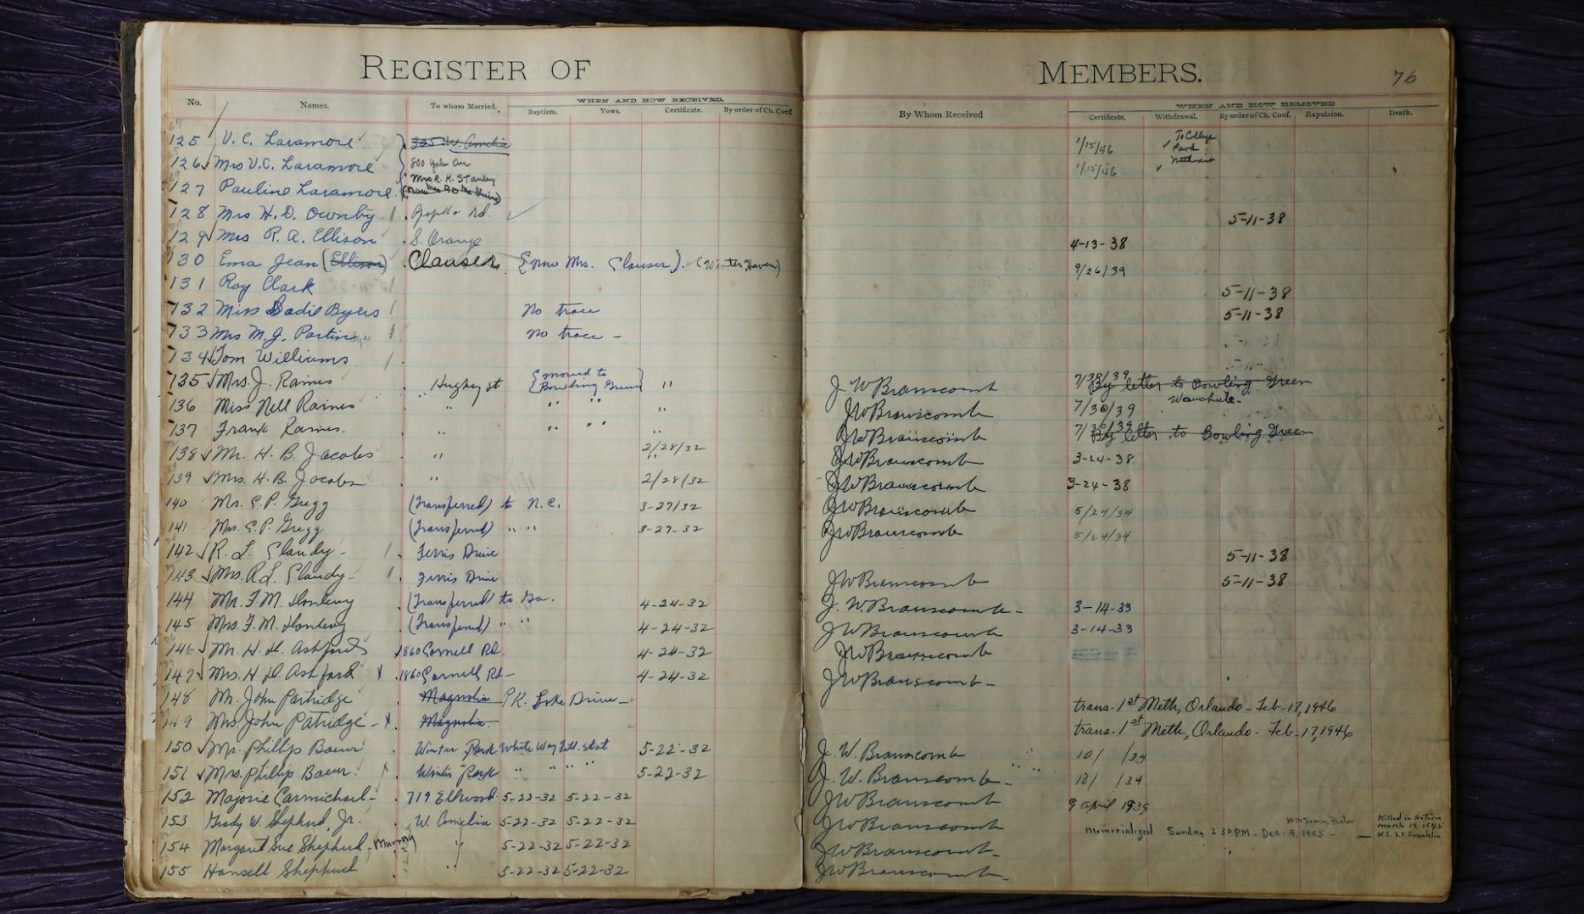 REGISTER OF MEMBERS. 76
No. Names. To whom Married, WHEN AND HOW RECEIVED. Baptism. Vows. Certificate. By order of Ch. Conf. By Whom Received WHEN AND HOW REMOVED Certificate. Withdrawal. By order of Ch. Conf. Expulsion. Death.
125 V. C. Laramore 305 W. Amelia 1/15/46 To College Park
126 Mrs V.C. Laramore 800 1/15/46
127 Pauline Laramore Mrs R. K. Stanley
128 Mrs H. D. Ownby Rd. 5-11-38
129 Mrs R. A. Ellison S. Orange 4-13-38
130 Ema Jean (Ellison) Clauser (now Mrs. Clauser). (Winter Haven) 9/26/39
131 Roy Clark 5-11-38
132 Miss Sadie Byers No trace 5-11-38
133 Mrs M. J. No trace -
134 Tom Williams
135 Mrs. J. Raines Hughey st {moved to Bowling Green} " J W Branscomb 7/30/39 By letter to Bowling Green
136 Miss Nell Raines " " " " J W Branscomb 7/30/39 Wauchula -
137 Frank Raines. " " " " J W Branscomb 7/30/39 By letter to Bowling Green
138 Mr. H. B. Jacobs " 2/28/32 J W Branscomb 3-24-38
139 Mrs. H. B. Jacobs " 2/28/32 J W Branscomb 3-24-38
140 Mr. E. P. Gregg (Transferred) to N.C. 3-27/32 J W Branscomb 5/24/34
141 Mrs. E. P. Gregg (Transferred) " " 3-27-32 J W Branscomb 5/24/34
142 R. L. - Ferris Drive 5-11-38
143 Mrs. R. L. - Ferris Drive J W Branscomb 5-11-38
144 Mr. F. M. (Transferred) to Ga. 4-24-32 J. W. Branscomb - 3-14-33
145 Mrs. F. M. (Transferred) " " 4-24-32 J W Branscomb 3-14-33
146 Mr. H. H. Ashford 1860 Cornell Rd. 4-24-32 J W Branscomb
147 Mrs. H. H. Ashford 1860 Cornell Rd - 4-24-32 J W Branscomb -
148 Mr. John Partridge Magnolia Lake Drive - trans. 1st Meth, Orlando - Feb. 17, 1946
149 Mrs John Patridge - Magnolia. trans. 1st Meth, Orlando - Feb. 17, 1946
150 Mr. Phillip Bauer Winter Park 5-22-32 J. W. Branscomb 10/ /34
151 Mrs. Phillip Bauer. Winter Park " " " " 5-22-32 J. W. Branscomb - 10/ /34
152 Majorie Carmichael - 719 Elkwood 5-22-32 5-22-32 J W Branscomb 9 april 1935
153 Grady W. Shepherd, Jr. W. Amelia 5-22-32 5-22-32 J W Branscomb Memorialized Sunday 2:30 PM - Dec. 9, 1945 - Killed in Action March 19, 1945 U.S.S. Franklin
154 Margaret Sue Shepherd, " 5-22-32 5-22-32 J W Branscomb -
155 Hansell Shepherd " 5-22-32 5-22-32 J W Branscomb -